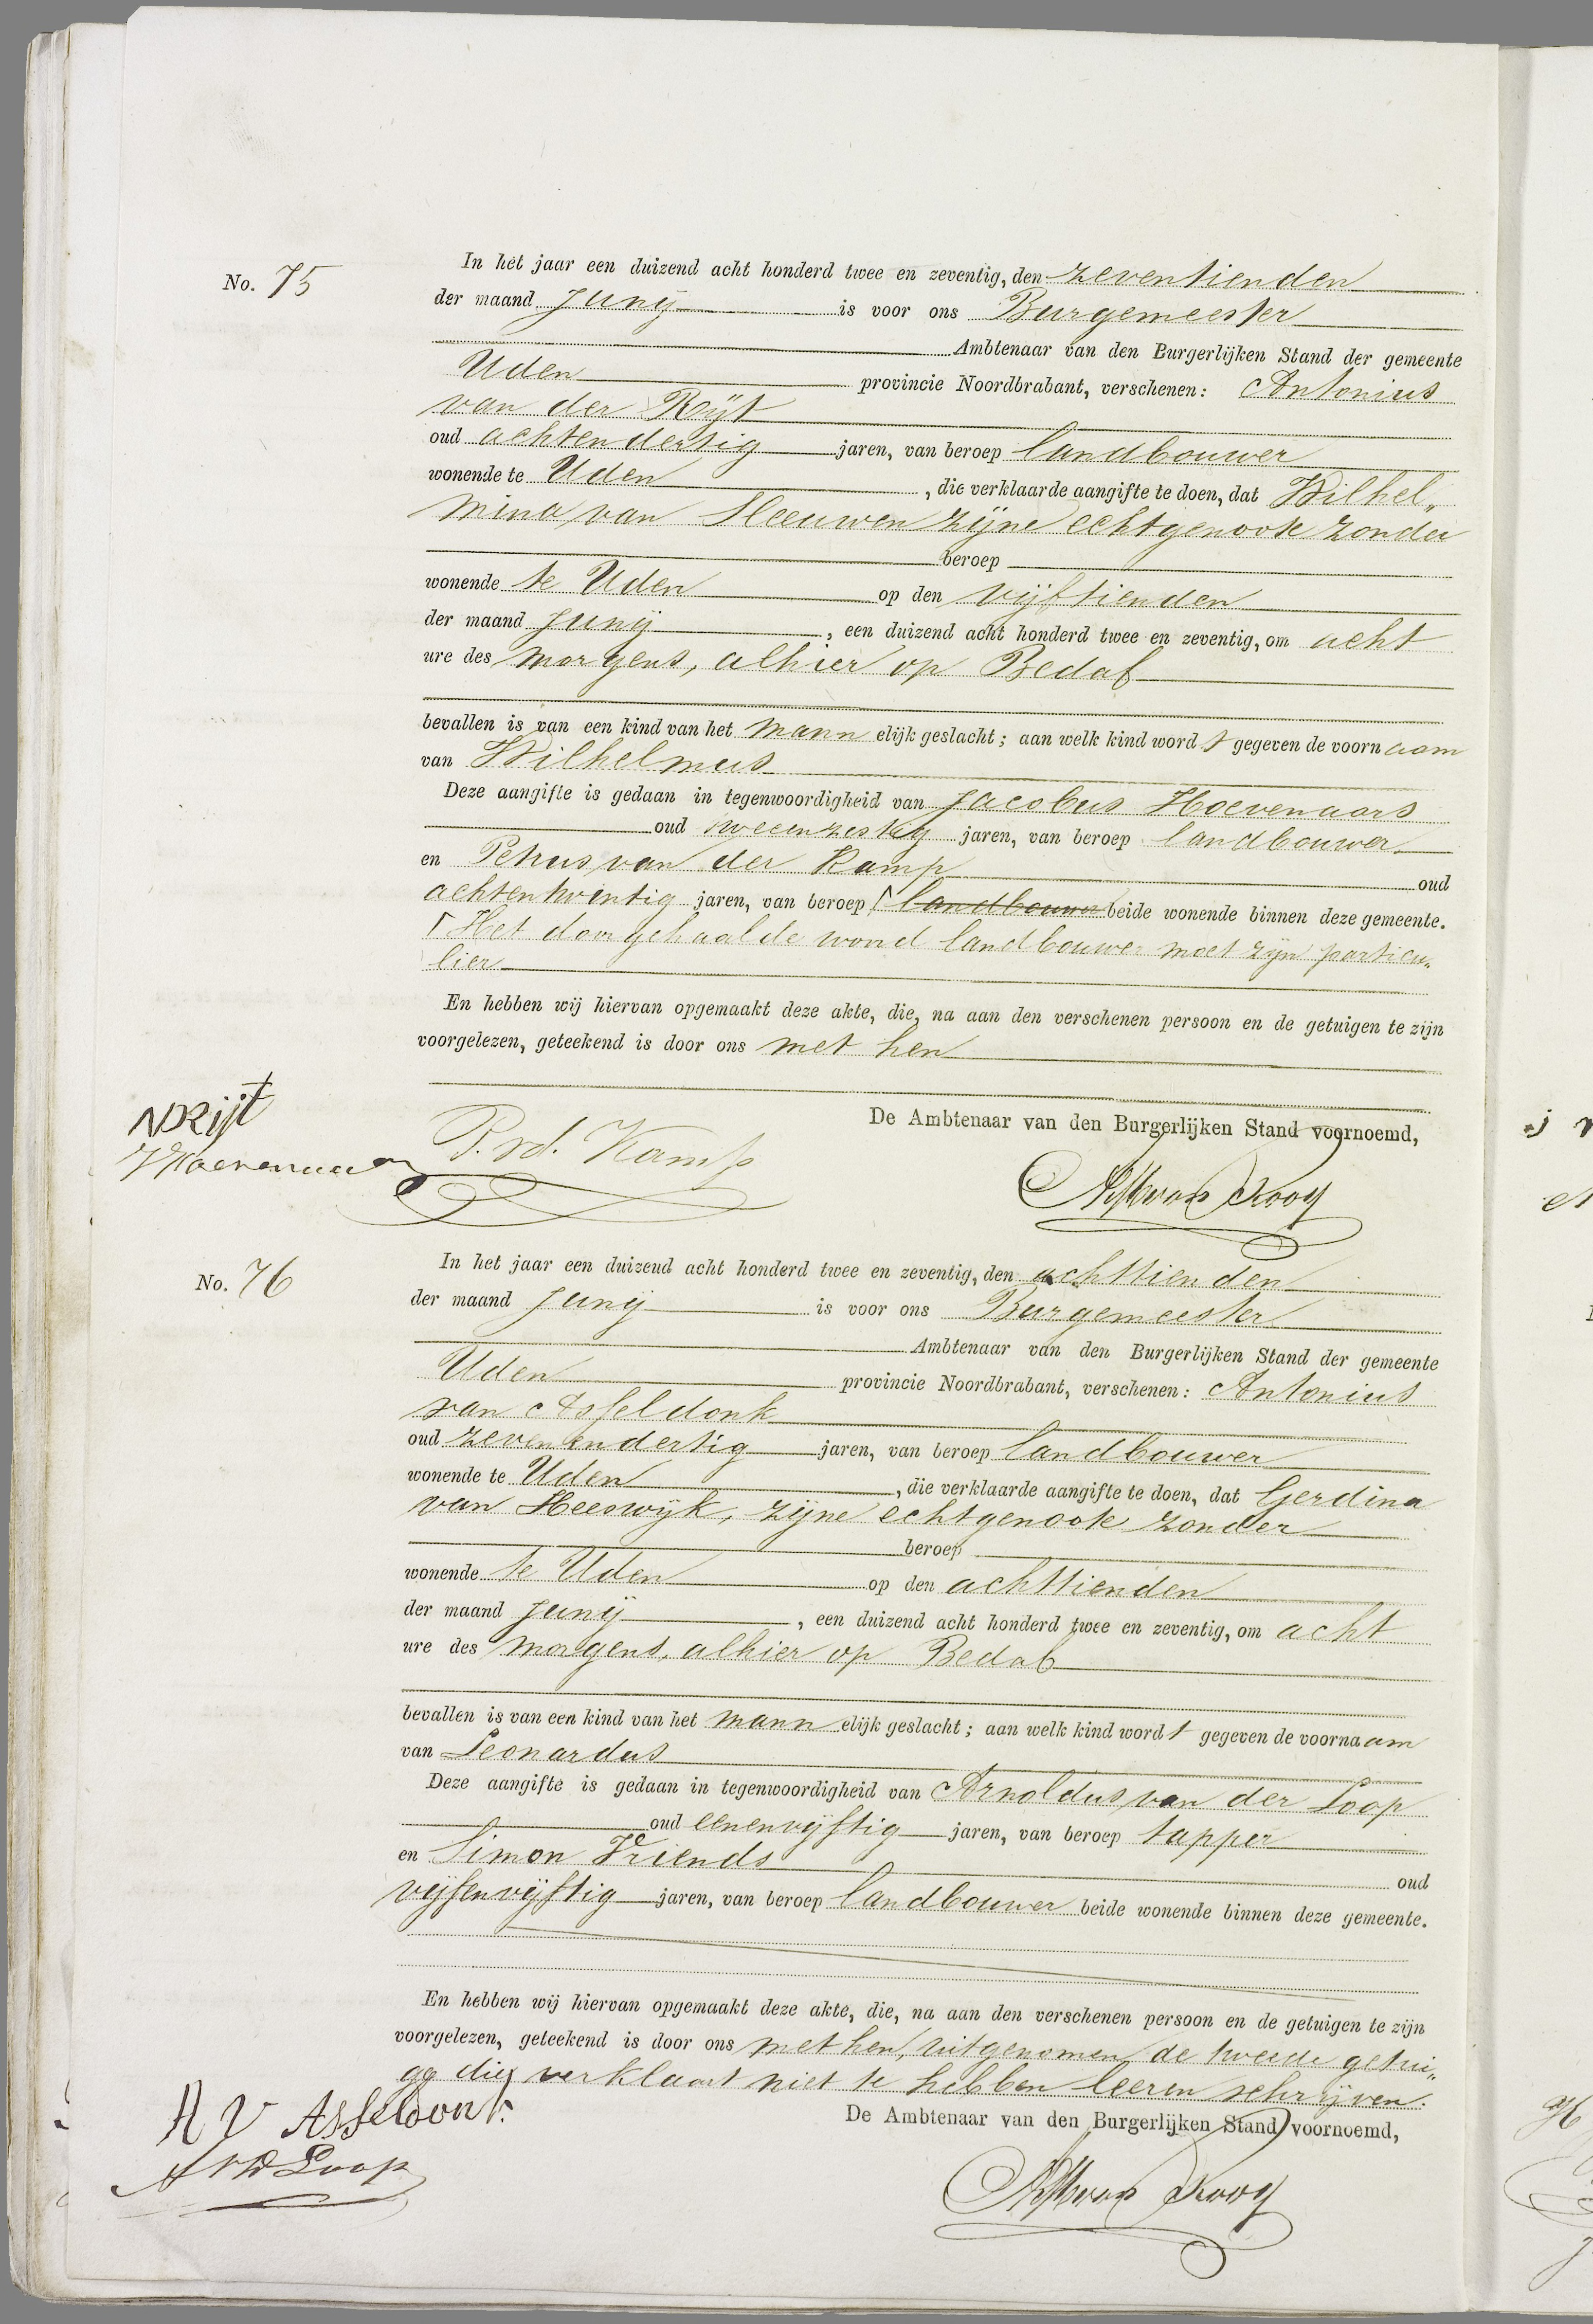 No. 75
In het jaar een duizend acht honderd twee en zeventig, den zeventienden
der maand Junij is voor ons Burgemeester
Ambtenaar van den Burgerlijken Stand der gemeente
Uden provincie Noordbrabant, verschenen: Antonius
van der Rijt
oud achtendertig jaren, van beroep landbouwer
wonende te Uden, die verklaarde aangifte te doen, dat Wilhel„
mina van Sleeuwen zijne echtgenoote zonder
beroep
wonende te Uden op den vijftienden
der maand Junij, een duizend acht honderd twee en zeventig, om acht
ure des morgens, alhier op Bedaf
bevallen is van een kind van het mannelijk geslacht; aan welk kind wordt gegeven de voornaam
van Wilhelmus
Deze aangifte is gedaan in tegenwoordigheid van Jacobus Hoevenaars
oud tweeenzestig jaren, van beroep landbouwer
en Petrus van der Kamp oud
achtentwintig jaren, van beroep ⌈ landbouwer beide wonende binnen deze gemeente.
⌈ Het doorgehaalde woord landbouwer moet zijn particu„
lier
En hebben wij hiervan opgemaakt deze akte, die, na aan den verschenen persoon en de getuigen te zijn
voorgelezen, geteekend is door ons met hen
De Ambtenaar van den Burgerlijken Stand voornoemd,
Rijt
J Hoevenaar
P. vd. Kamp
No. 76
In het jaar een duizend acht honderd twee en zeventig, den achttienden
der maand Junij is voor ons Burgemeester
Ambtenaar van den Burgerlijken Stand der gemeente
Uden provincie Noordbrabant, verschenen: Antonius
van Asseldonk
oud zevenendertig jaren, van beroep landbouwer
wonende te Uden, die verklaarde aangifte te doen, dat Gerdina
van Heeswijk, zijne echtgenoote zonder
beroep
wonende te Uden op den achttienden
der maand Junij, een duizend acht honderd twee en zeventig, om acht
ure des morgens, alhier op Bedaf
bevallen is van een kind van het mannelijk geslacht; aan welk kind wordt gegeven de voornaam
van Leonardus
Deze aangifte is gedaan in tegenwoordigheid van Arnoldus van der Loop
oud eenenvijftig jaren, van beroep tapper
en Simon Vriends oud
vijfenvijftig jaren, van beroep landbouwer beide wonende binnen deze gemeente.
En hebben wij hiervan opgemaakt deze akte, die, na aan den verschenen persoon en de getuigen te zijn
voorgelezen, geteekend is door ons met hen, uitgenomen de tweede getui„
ge die verklaart niet te hebben leeren schrijven.
De Ambtenaar van den Burgerlijken Stand voornoemd,
A V Asseldonk
A VD Loop